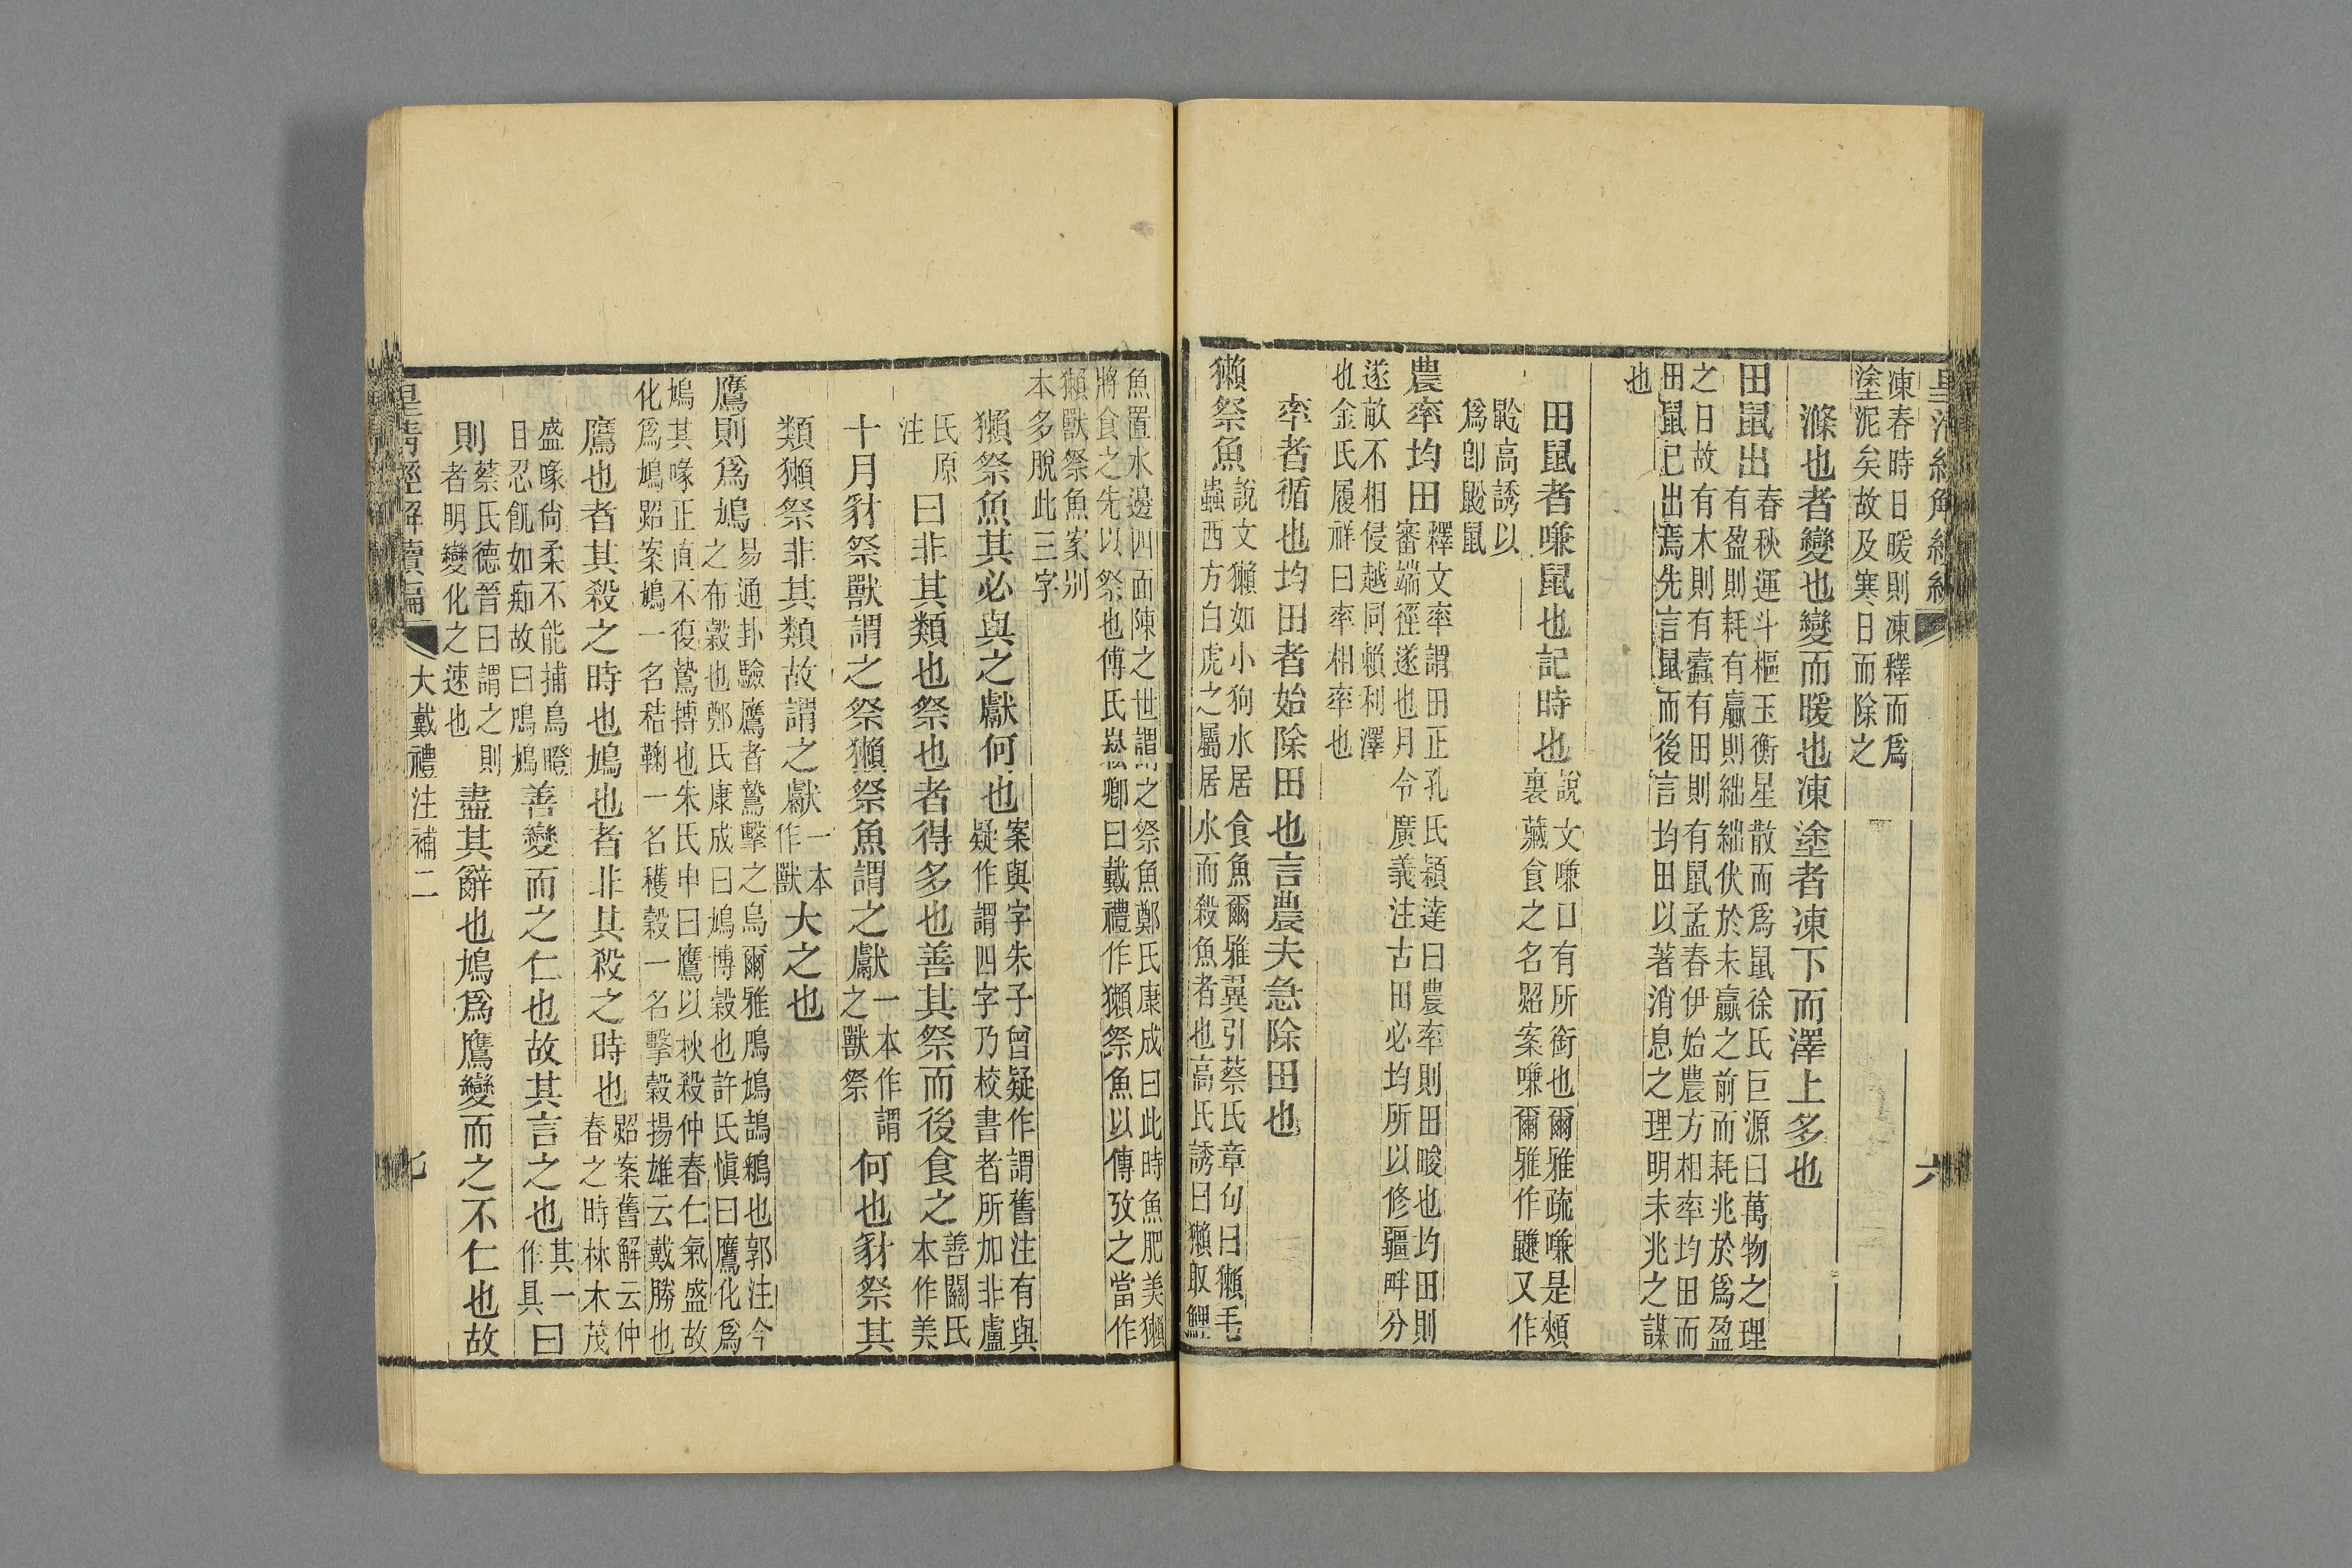 六
凍春時日暖則凍釋而爲
塗泥矣故及寒日而除之
滌也者變也變而暖也凍塗者凍下而澤上多也
田鼠出春秋運斗樞玉衡星散而爲鼠徐氏巨源曰萬物之理
有盈則耗有贏則絀絀伏於未贏之前而耗兆於爲盈
之日故有木則有蠹有田則有鼠孟春伊始農方相率均田而
田鼠已出焉先言鼠而後言均田以著消息之理明未兆之謀
也
田鼠者嗛鼠也記時也說文嗛口有所銜也爾雅疏嗛是頰
裏藏食之名照案嗛爾雅作鼸又作
高誘以
爲卽鼠
農率均田釋文率謂田正孔氏穎達曰農率則田畯也均田則
審端徑遂也月令廣義注古田必均所以修疆畔分
遂敵不相侵越同賴利澤
也金氏履祥曰率相率也
率者循也均田者始除田也言農夫急除田也
獺祭魚說文獺如小狗水居食魚爾雅翼引蔡氏章句曰獺毛
蟲西方白虎之屬居水而殺魚者也高氏誘曰獺取鯉
魚置水邊四面陳之世謂之祭魚鄭氏康成曰此時魚肥美獺
將食之先以祭也傅氏崧卿曰戴禮作獺祭魚以傳攷之當作
獺獸祭魚案別
本多脫此三字
獺祭魚其必與之獻何也案與字朱子曾疑作謂舊注有與
疑作謂四字乃校書者所加非盧
氏原
注
曰非其類也祭也者得多也善其祭而後食之善關氏
本作美
十月豺祭獸謂之祭獺祭魚謂之獻一本作謂
之獸祭
何也豺祭其
類獺祭非其類故謂之獻一本
作獸
大之也
鷹則爲鳩易通卦驗鷹者鷙擊之鳥爾雅鳲鳩鴶鵴也郭注今
之布穀也鄭氏康成曰鳩博穀也許氏愼曰鷹化爲
鳩其喙正直不復鷙搏也朱氏申曰鷹以秋殺仲春仁氣盛故
化爲鳩照案鳩一名秸鞠一名穫穀一名擊穀揚雄云戴勝也
鷹也者其殺之時也鳩也者非其殺之時也照案舊解云仲
春之時林木茂
盛喙尙柔不能捕鳥瞪
目忍飢如痴故曰鳲鳩
善變而之仁也故其言之也其一
作具
曰
則蔡氏德晉曰謂之則
者明變化之速也
盡其辭也鳩爲鷹變而之不仁也故
皇淸經解續編
大戴禮注補二
七